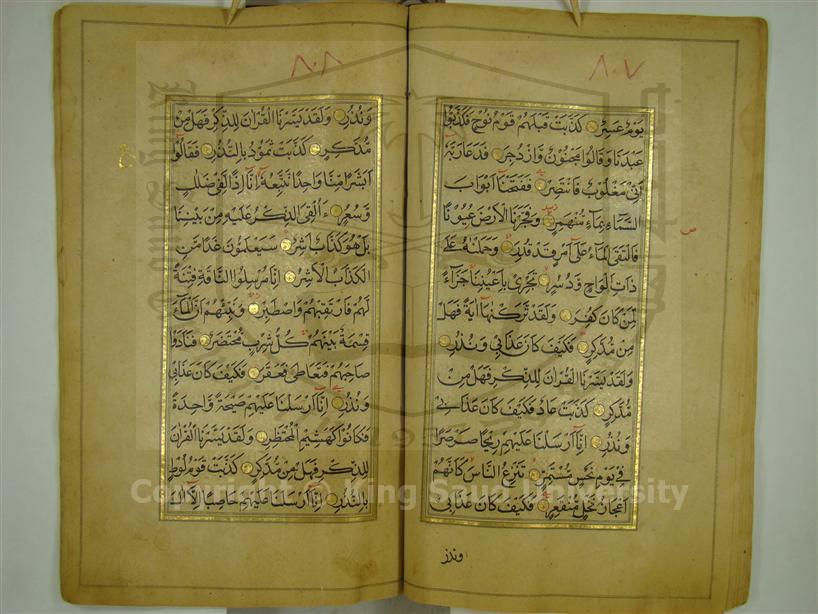 ٨٠٧
يَوْمٌ عَسِرٌ كَذَّبَتْ قَبْلَهُمْ قَوْمُ نُوحٍ فَكَذَّبُوا
عَبْدَنَا وَقَالُوا مَجْنُونٌ وَازْدُجِرَ فَدَعَا رَبَّهُ
أَنِّي مَغْلُوبٌ فَانْتَصِرْ فَفَتَحْنَا أَبْوَابَ
السَّمَاءِ بِمَاءٍ مُنْهَمِرٍ وَفَجَّرْنَا الْأَرْضَ عُيُونًا
فَالْتَقَى الْمَاءُ عَلَى أَمْرٍ قَدْ قُدِرَ وَحَمَلْنٰهُ عَلَى
ذَاتِ أَلْوَاحٍ وَدُسُرٍ تَجْرِي بِأَعْيُنِنَا جَزَاءً
لِمَنْ كَانَ كُفِرَ وَلَقَدْ تَرَكْنَاهَا آيَةً فَهَلْ
مِنْ مُدَّكِرٍ فَكَيْفَ كَانَ عَذَابِي وَنُذُرِ
وَلَقَدْ يَسَّرْنَا الْقُرْآنَ لِلذِّكْرِ فَهَلْ مِنْ
مُدَّكِرٍ كَذَّبَتْ عَادٌ فَكَيْفَ كَانَ عَذَابِي
وَنُذُرِ إِنَّا أَرْسَلْنَا عَلَيْهِمْ رِيحًا صَرْصَرًا
فِي يَوْمِ نَحْسٍ مُسْتَمِرٍّ تَنْزِعُ النَّاسَ كَأَنَّهُمْ
أَعْجَازُ نَخْلٍ مُنْقَعِرٍ فَكَيْفَ كَانَ عَذَابِي
ونذر
٨٠٨
وَنُذُرِ وَلَقَدْ يَسَّرْنَا الْقُرْآنَ لِلذِّكْرِ فَهَلْ مِنْ
مُدَّكِرٍ كَذَّبَتْ ثَمُودُ بِالنُّذُرِ فَقَالُوا
أَبَشَرًا مِنَّا وَاحِدًا نَتَّبِعُهُ إِنَّا إِذًا لَفِي ضَلٰلٍ
وَسُعُرٍ ءَأُلْقِيَ الذِّكْرُ عَلَيْهِ مِنْ بَيْنِنَا
بَلْ هُوَ كَذَّابٌ أَشِرٌ سَيَعْلَمُونَ غَدًا مَنِ
الْكَذَّابُ الْأَشِرُ إِنَّا مُرْسِلُوا النَّاقَةِ فِتْنَةً
لَهُمْ فَارْتَقِبْهُمْ وَاصْطَبِرْ وَنَبِّئْهُمْ أَنَّ الْمَاءَ
قِسْمَةٌ بَيْنَهُمْ كُلُّ شِرْبٍ مُحْتَضَرٌ فَنَادَوْا
صَاحِبَهُمْ فَتَعَاطَى فَعَقَرَ فَكَيْفَ كَانَ عَذَابِي
وَنُذُرِ إِنَّا أَرْسَلْنَا عَلَيْهِمْ صَيْحَةً وَاحِدَةً
فَكَانُوا كَهَشِيمِ الْمُحْتَظِرِ وَلَقَدْ يَسَّرْنَا الْقُرْآنَ
لِلذِّكْرِ فَهَلْ مِنْ مُدَّكِرٍ كَذَّبَتْ قَوْمُ لُوطٍ
بِالنُّذُرِ إِنَّا أَرْسَلْنَا عَلَيْهِمْ حَاصِبًا إِلَّا آلَ
Copyright © King Saud University